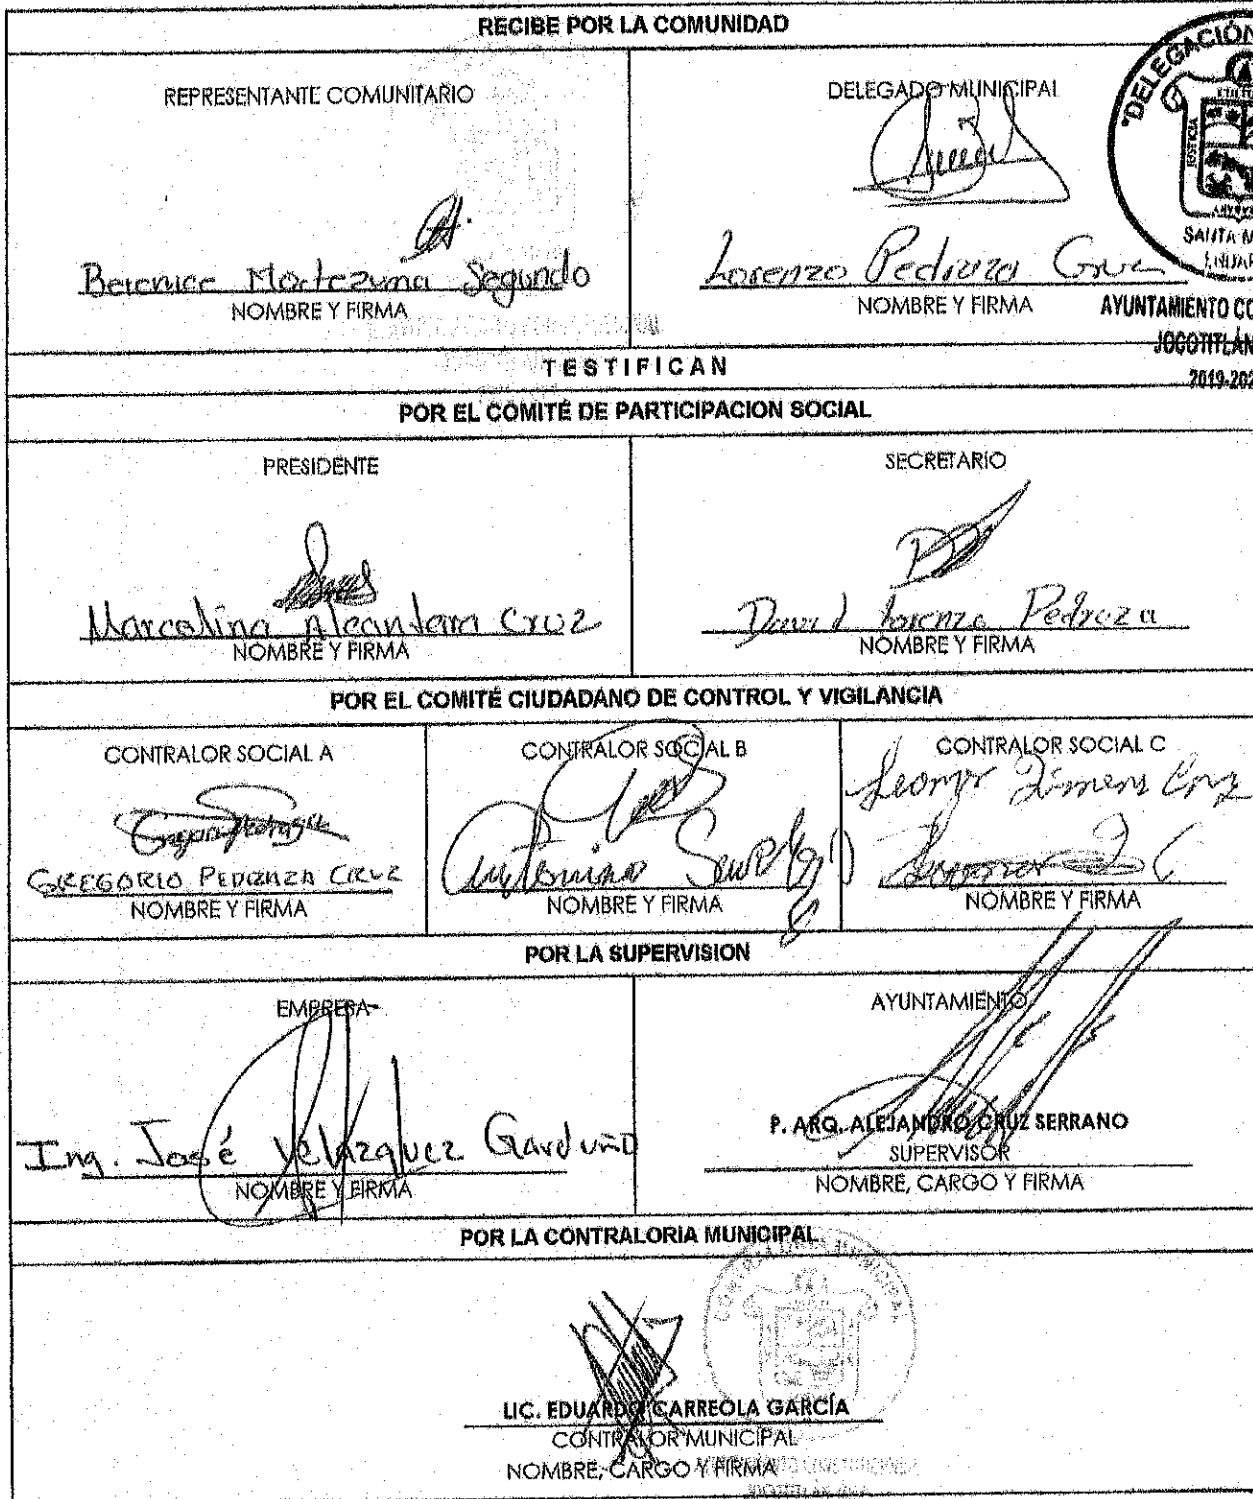 RECIBE POR LA COMUNIDAD
REPRESENTANTE COMUNITARIO
Berenice Moctezuma Segundo
NOMBRE Y FIRMA
DELEGADO MUNICIPAL
Lorenzo Pedraza Cruz
NOMBRE Y FIRMA
"DELEGACIÓN
JUSTICIA
SANTA M
AYUNTAMIENTO CO
JOCOTITLÁN
2019-202
TESTIFICAN
POR EL COMITÉ DE PARTICIPACION SOCIAL
PRESIDENTE
Marcelina Alcantara Cruz
NOMBRE Y FIRMA
SECRETARIO
David Lorenzo Pedroza
NOMBRE Y FIRMA
POR EL COMITÉ CIUDADANO DE CONTROL Y VIGILANCIA
CONTRALOR SOCIAL A
GREGORIO PEDRAZA CRUZ
NOMBRE Y FIRMA
CONTRALOR SOCIAL B
Antonino
NOMBRE Y FIRMA
CONTRALOR SOCIAL C
Leonor Jimenz Cruz
NOMBRE Y FIRMA
POR LA SUPERVISION
EMPRESA
Ing. José Velázquez Garduño
NOMBRE Y FIRMA
AYUNTAMIENTO
P. ARQ. ALEJANDRO CRUZ SERRANO
SUPERVISOR
NOMBRE, CARGO Y FIRMA
POR LA CONTRALORIA MUNICIPAL
CONTRALORIA MUNICIPAL
LIC. EDUARDO CARREOLA GARCÍA
CONTRALOR MUNICIPAL
NOMBRE, CARGO Y FIRMA